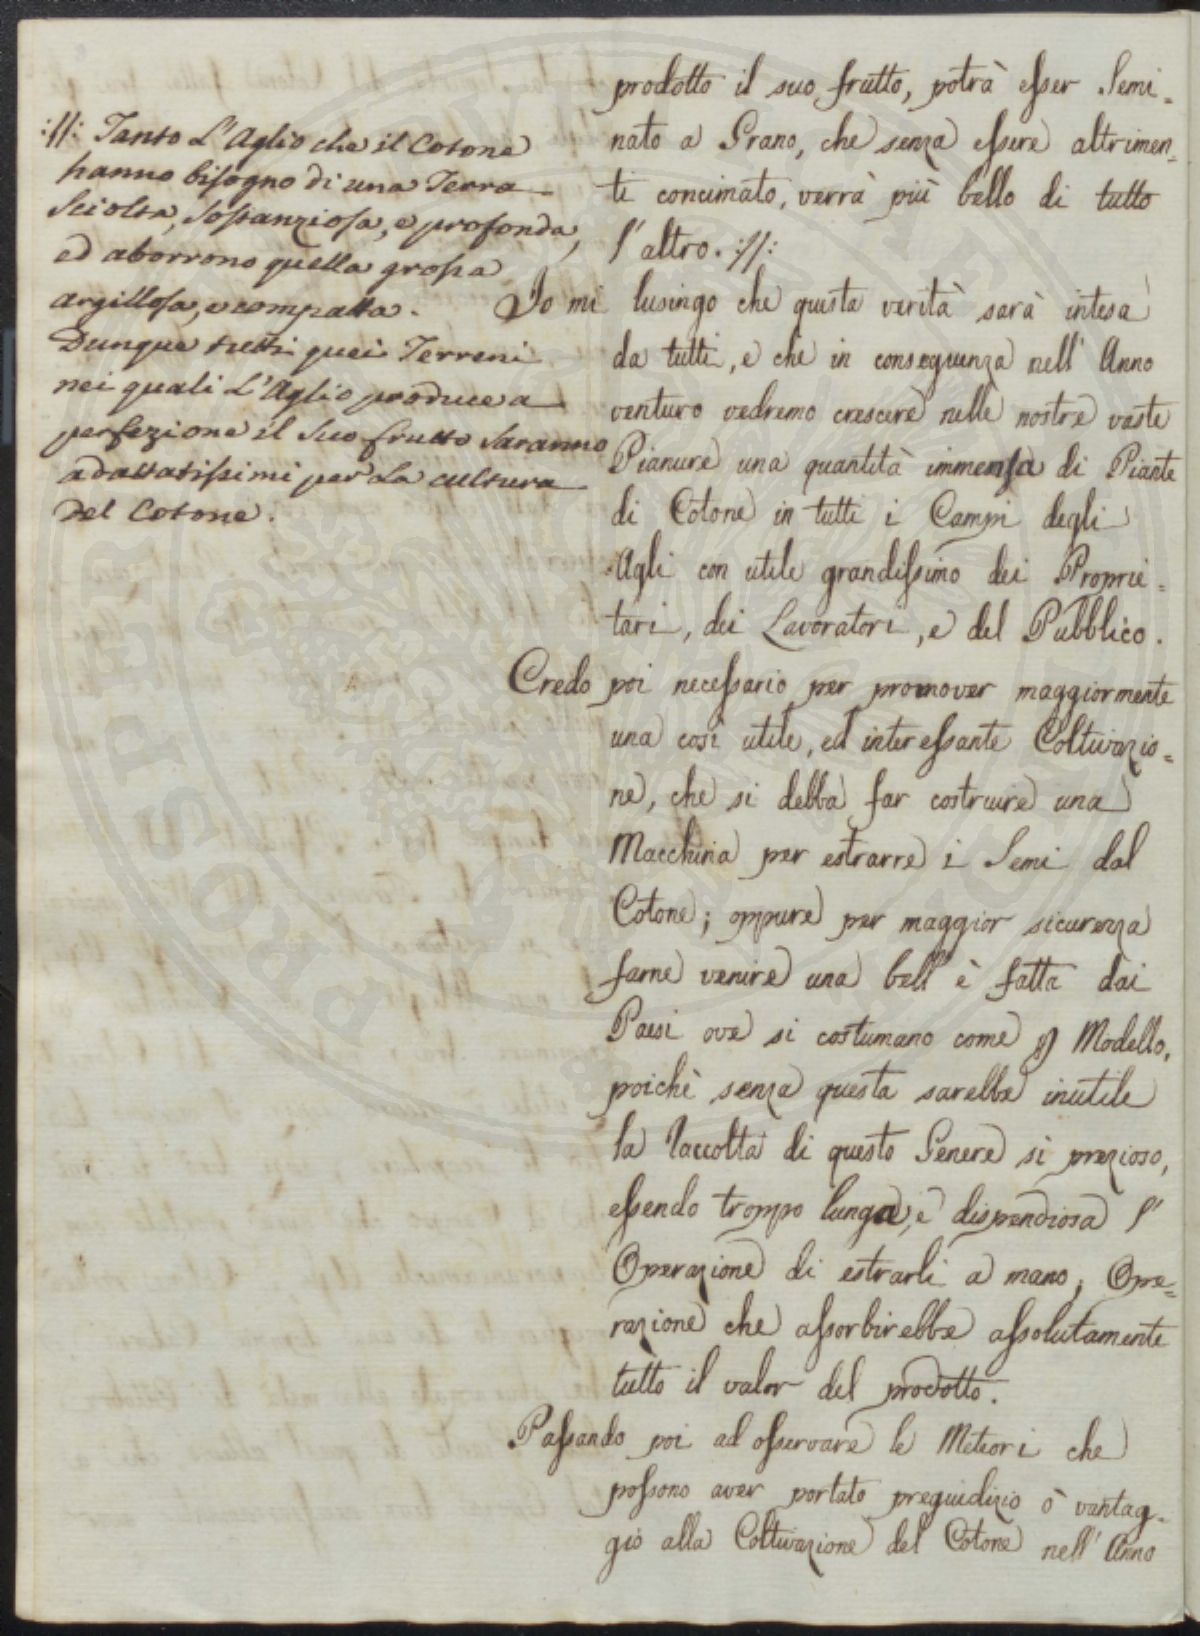 :/: Tanto L'Aglio che il Cotone
hanno bisogno di una Terra
Sciolta, Sostanziosa, e profonda,
ed aborrono quella grossa
argillosa, e compatta.
Dunque tutti quei Terreni
nei quali L'Aglio produce a
perfezione il Suo frutto Saranno
adattatissimi per La cultura
Del Cotone.
prodotto il suo frutto, potrà esser Semi=
nato a Grano, che senza essere altrimen=
ti concimato, verrà più bello di tutto
l'altro. :/:
Io mi lusingo che questa verità sarà intesa
da tutti, e che in conseguenza nell'Anno
venturo vedremo crescere nelle nostre vaste
Pianure una quantità immensa di Piante
di Cotone in tutti i Campi degli
Agli con utile grandissimo dei Proprie=
tari, dei Lavoratori, e del Pubblico.
Credo poi necessario per promover maggiormente
una così utile, ed interessante Coltivazio=
ne, che si debba far costruire una
Macchina per estrarre i Semi dal
Cotone; oppure per maggior sicurezza
farne venire una bell'è fatta dai
Paesi ove si costumano come p Modello,
poichè senza questa sarebbe inutile
la Raccolta di questo Genere sì prezioso,
essendo troppo lunga, e dispendiosa l'
Operazione di estrarli a mano; Ope=
razione che assorbirebbe assolutamente
tutto il valor del prodotto.
Passando poi ad osservare le Meteori che
possono aver portato preguidizio ò vantag=
gio alla Coltivazione del Cotone nell'Anno
PRO SOPITIS